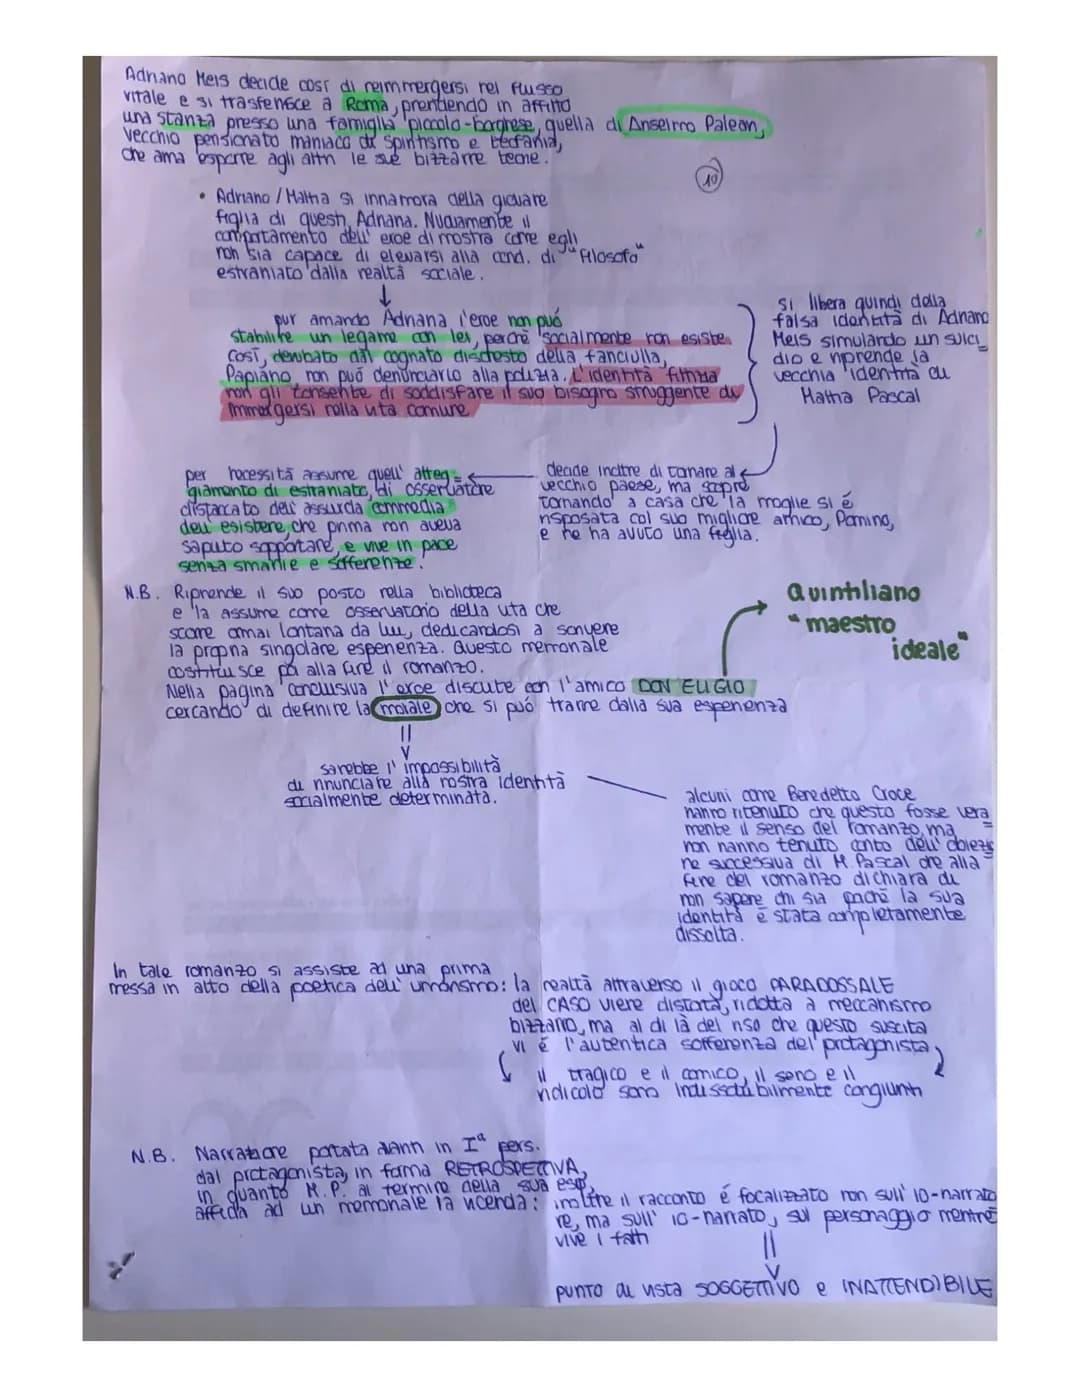 Adriano Meis decide così di reimmergersi nel flusso
vitale e si trasferisce a Roma, prendendo in affitto
una stanza presso una famiglia piccolo-borghese, quella di Anselmo Paleari,
vecchio pensionato maniaco di spiritismo e teofania,
che ama esporre agli altri le sue bizzarre teorie.
10
• Adriano / Mattia si innamora della giovane
figlia di questi, Adriana. Nuovamente il
comportamento dell' eroe dimostra come egli
non sia capace di elevarsi alla cond. di "filosofo"
estraniato dalla realtà sociale.
↓
pur amando Adriana l'eroe non può
stabilire un legame con lei, perché socialmente non esiste.
Così, derubato dal cognato disonesto della fanciulla,
Papiano, non può denunciarlo alla polizia. L'identità fittizia
non gli consente di soddisfare il suo bisogno struggente di
immergersi nella vita comune.
si libera quindi della
falsa identità di Adriano
Meis simulando un suici_
dio e riprende la
vecchia identità di
Mattia Pascal
decide inoltre di tornare al
vecchio paese, ma scopre
tornando a casa che la moglie si è
risposata col suo migliore amico, Pomino,
e ne ha avuto una figlia.
per necessità assume quell' atteg=
giamento di estraniato, di osservatore
distaccato dell' assurda commedia
dell' esistere, che prima non aveva
saputo sopportare, e vive in pace
senza smanie e sofferenze.
N.B. Riprende il suo posto nella biblioteca
e la assume come osservatorio della vita che
scorre ormai lontana da lui, dedicandosi a scrivere
la propria singolare esperienza. Questo memoriale
costituisce poi alla fine il romanzo.
Nella pagina conclusiva l'eroe discute con l'amico DON ELIGIO
cercando di definire la morale che si può trarre dalla sua esperienza
Quintiliano
"maestro
ideale"
sarebbe l'impossibilità
di rinunciare alla nostra identità
socialmente determinata.
alcuni come Benedetto Croce
hanno ritenuto che questo fosse vera
mente il senso del romanzo, ma
non hanno tenuto conto dell' obiezio
ne successiva di M. Pascal che alla
fine del romanzo dichiara di
non sapere chi sia poiché la sua
identità è stata completamente
dissolta.
In tale romanzo si assiste ad una prima
messa in atto della poetica dell' umorismo: la realtà attraverso il gioco PARADOSSALE
del CASO viene distorta, ridotta a meccanismo
bizzarro, ma al di là del riso che questo suscita
vi è l'autentica sofferenza del protagonista,
il tragico e il comico, il serio e il
ridicolo sono indissolubilmente congiunti
N.B. Narrazione portata avanti in Iª pers.
dal protagonista, in forma RETROSPETTIVA,
in quanto M.P. al termine della sua esp.
affida ad un memoriale la vicenda: inoltre il racconto è focalizzato non sull' io-narrato
re, ma sull' io-narrato, sul personaggio mentre
vive i fatti
punto di vista SOGGETTIVO e INATTENDIBILE